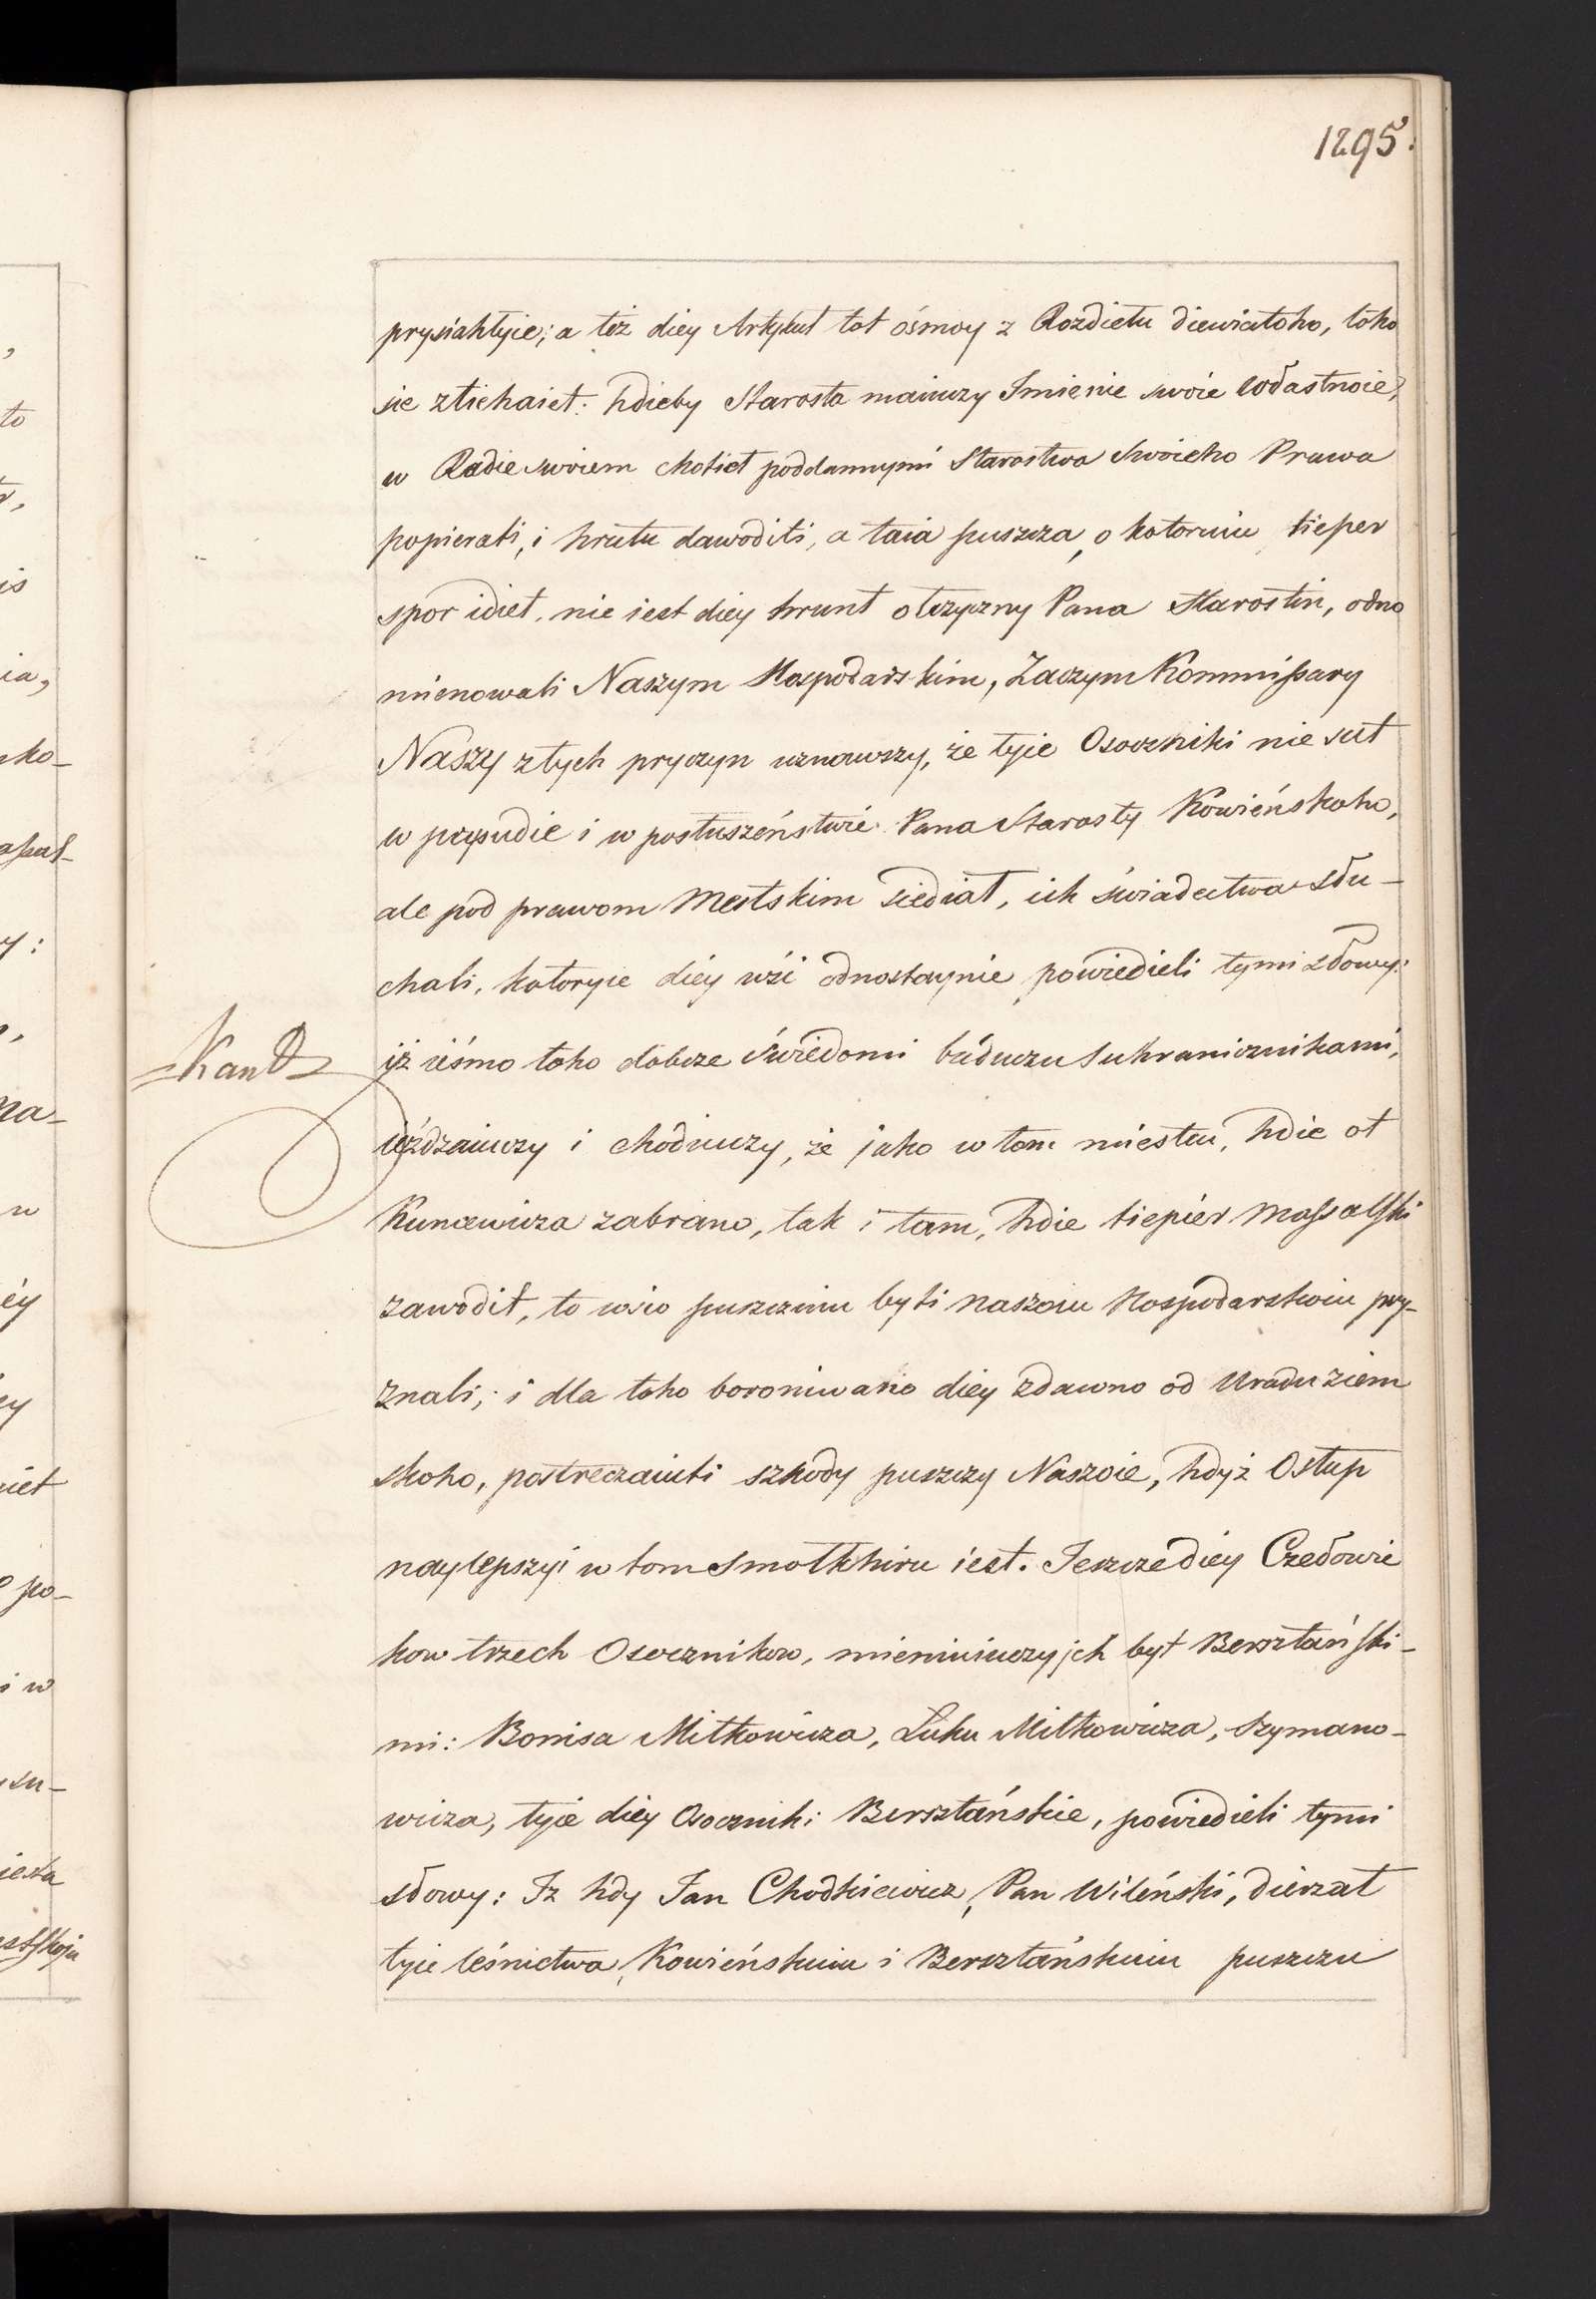 1295.
prysiahłyie; a też diey Artykuł tot óśmoy z Rozdiełu diewiatoho, toho
sie ztiehaiet: hdieby Starosta maiuczy Imienie swoie własnoie,
w Radie swoiem chotieł poddannymi Starostwa swoieho Prawa
popierati, i hrutu dawoditi, a taia puszcza, o kotoruiu tieper
spor idiet, nie iest diey hrunt otczyzny Pana Starostin, odno
mienowali Naszym Hospodarskim, Zaczym Kommissary
Naszy z tych pryczyn uznawszy, że tyie Osoczniki nie sut
w prysudie i w posłuszeństwie Pana Starosty Kowieńskoho,
ale pod prawom Mestskim siediat, ich świadectwa słu-
chali, kotoryie diey wsi odnostaynie powiedieli tymi słowy:
iż ieśmo toho dobrze świedomi buduczu suhranicznikami,
Kand
ieżdzaiuczy i chodiuczy, że jako w tom miestcu, hdie ot
Kuncewicza zabrano, tak i tam, hdie tiepier Massalski
zawodił, to wsio puszczuiu byti naszoiu Hospodarskoiu pry-
znali; i dla toho boroniwano diey zdawno od Uradu ziem
skoho, postreczaiuti szkody puszczy Naszoie, hdyż Ostup
naylepszyi w tom Smołkhiru iest. Jeszcze diey Czełowie
kow trzech Osocznikow, mieniuiuczy jch był Bersztański-
mi: Bonisa Miłkowicza, Łuku Miłkowicza, Szymano-
wicza, tyie diey Osoczniki Bersztańskie, powiedieli tymi
słowy: Iz hdy Jan Chodkiewicz, Pan Wileński, dierzał
tyie leśnictwa, Kowieńskuiu i Bersztańskuiu puszczu